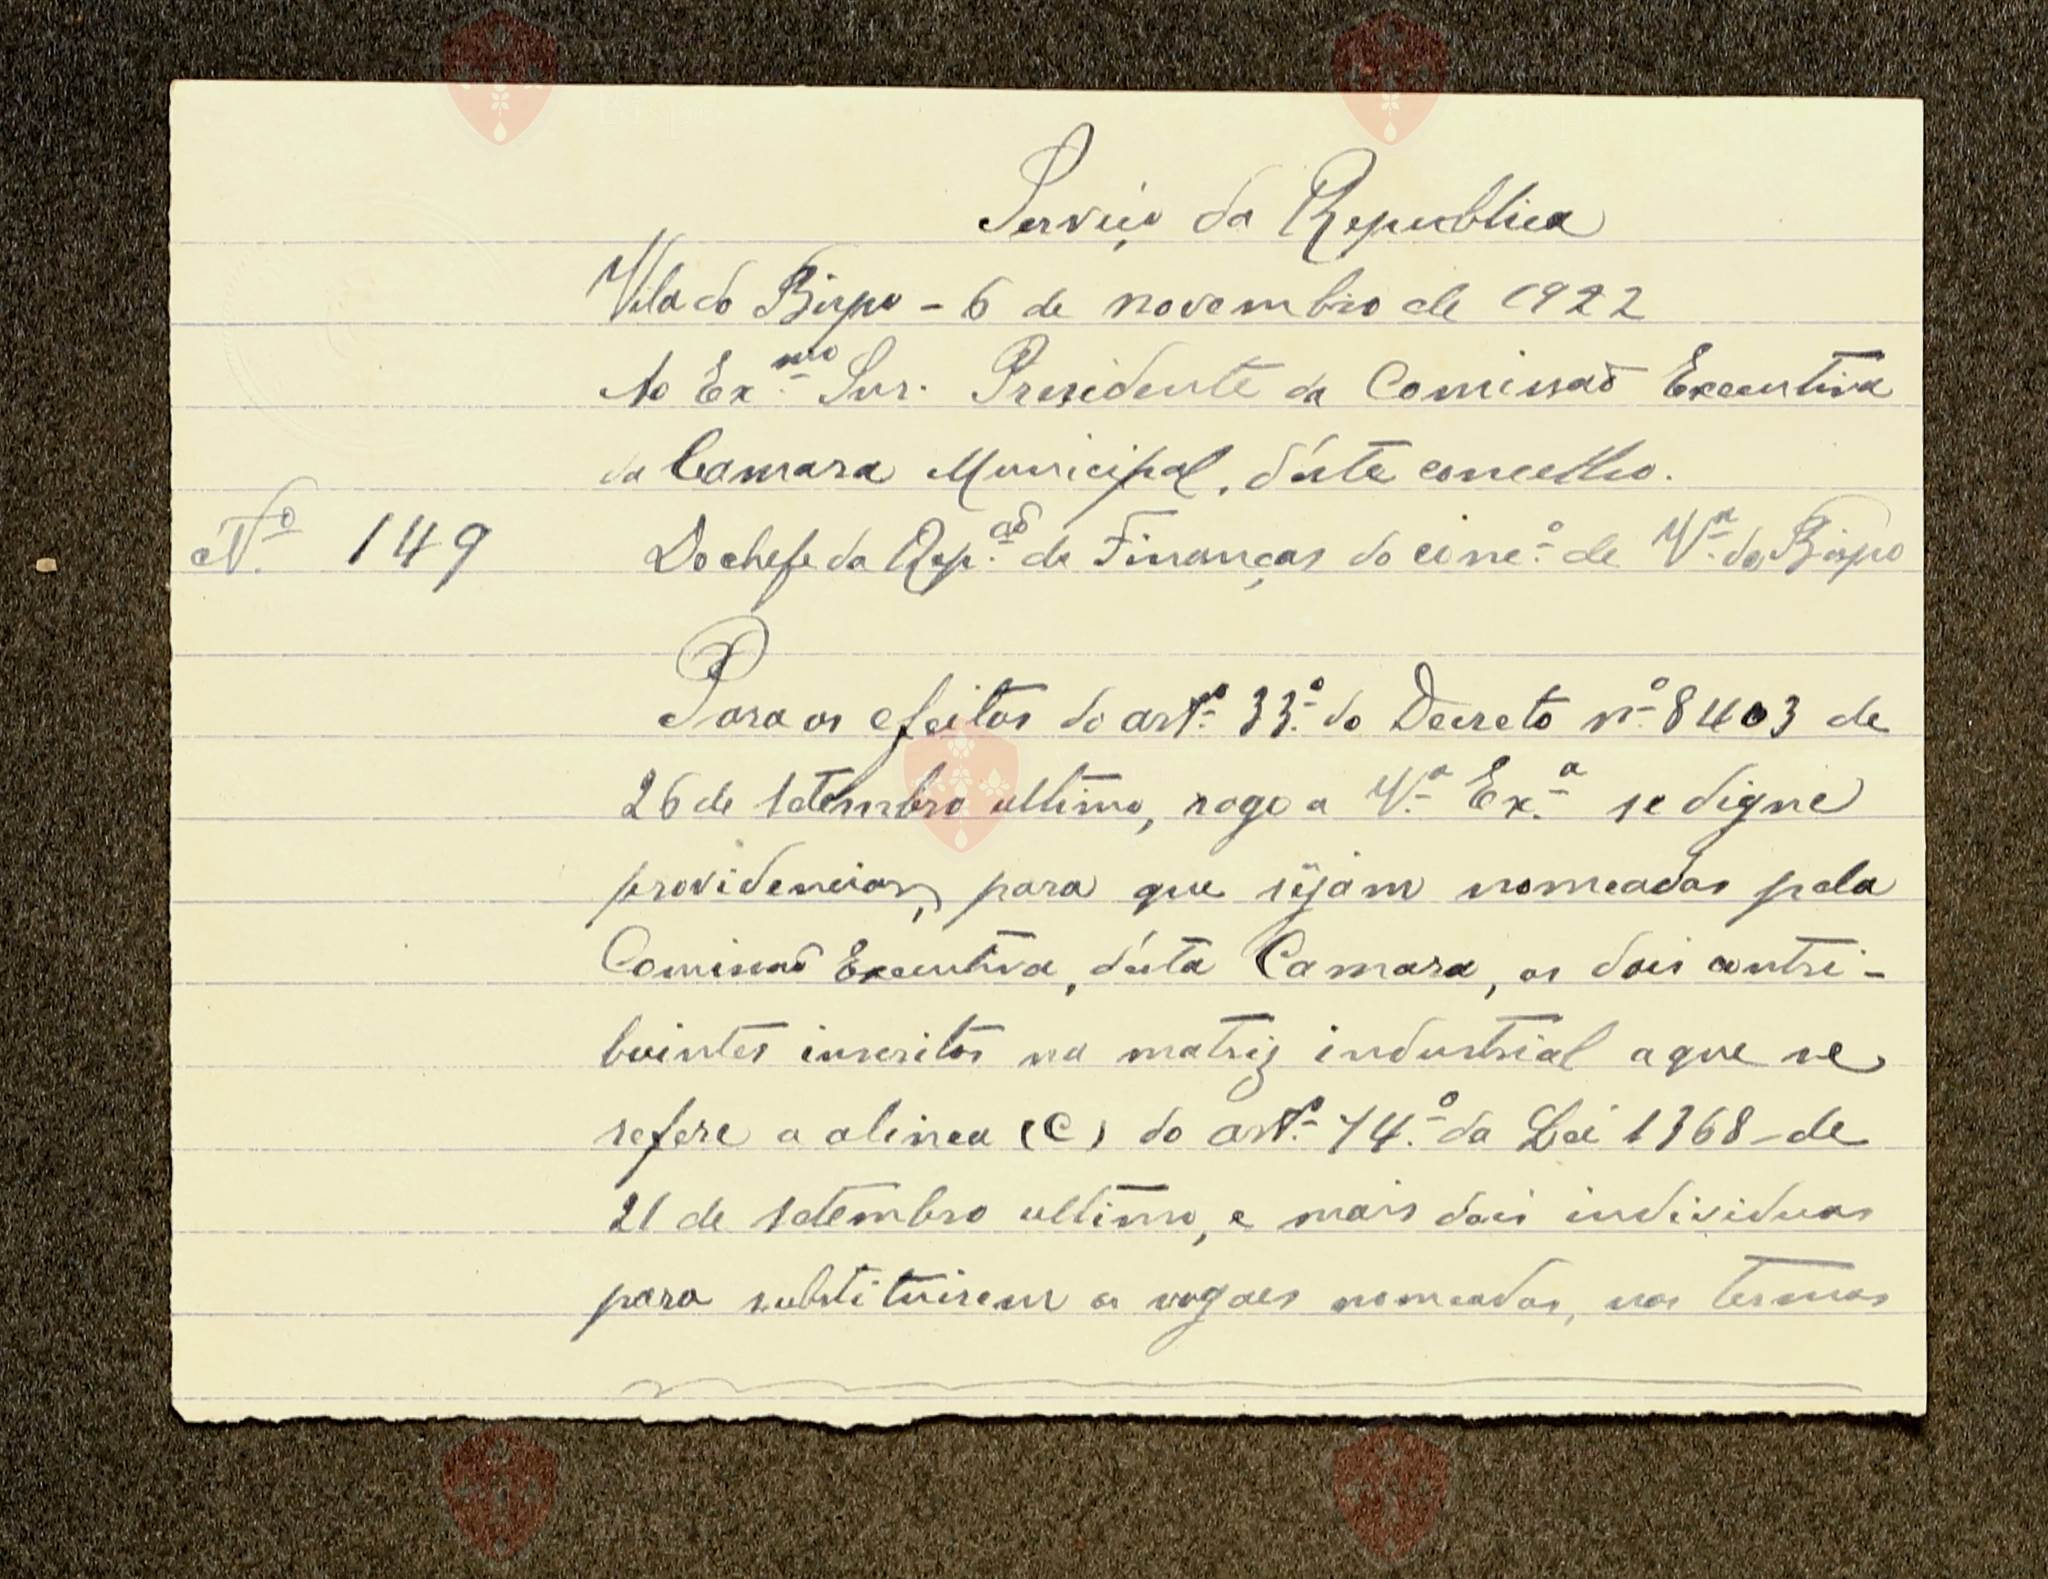 Serviço da Republica
Vila do Bispo - 6 de novembro de 1922
Ao Ex.mo Snr. Presidente da Comissaõ Executiva
da Camara Municipal, d'éste concelho.
N.º 149 Do chefe da Rep.çaõ de Finanças do conc.º de V.ª do Bispo
Para os efeitos do art.º 33.º do Decreto n.º 8403 de
26 de setembro ultimo, rogo a V.ª Ex.ª se digne
providenciar, para que sejam nomeados pela
Comissaõ Executiva, d'ésta Camara, os dois contri-
buintes inscritos na matriz industrial a que se
refere a alinea (C) do art.º 74.º da Lei 1368 - de
21 de setembro ultimo, e mais dois individuos
para substituirem os vogaes nomeados, nos termos